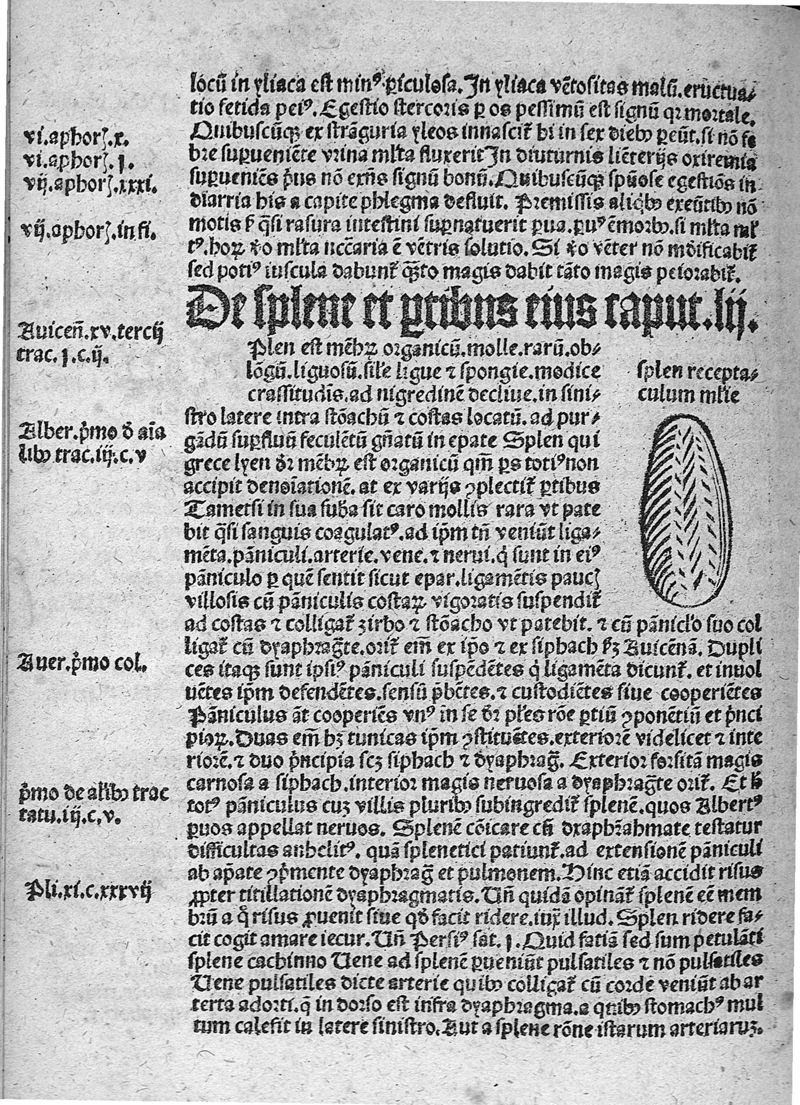 locū in yliaca est minꝰ ꝑiculosa. In yliaca vētositas malū. eructua-
tio fetida peiꝰ. Egestio stercoris ꝑ os pessimū est signū qr mortale.
vi.aphorꝫ.x.
Quibuscūqꝫ ex strāguria yleos innascit᷑ hi in sex dieb₉ ꝑeūt. si nō fe
vi.aphorꝫ.j.
bre suꝑueniēte vrina mlta fluxerit In diuturnis liēterijs oxiremia
vij.aphorꝫ.xxxi.
suꝑueniēs p̄us nō exn̄s signū bonū. Quibuscūqꝫ spūose egestiōs in
diarria his a capite phlegma defluit. Premissis aliqb₉ exeūtib₉ nō
vij.aphorꝫ.in fi.
motis qͣsi rasura intestini suꝑnatuerit si mlta
mlta ncc̄aria ē vētris solutio. Si vēter nō mōificabit᷑
sed potiꝰ iuscula dabunt᷑ qͣto magis dabit tāto magis peiorabit᷑.
De splene et ꝑtibus eius caput.lij.
Auiceñ.xv.tercij
trac.j.c.ij.
Plen est mēbꝝ organicū. molle. rarū. ob-
lōgū. liguosū. sile ligue ⁊ spongie. modice
crassitudīs. ad nigredinē decliue. in sini-
splen recepta-
culum mlie
stro latere intra stōachū ⁊ costas locatū. ad pur-
Alber.p̄mo d̄ aīa
lib₉ trac.iij.c.v
gādū suꝑfluū feculētū gn̄atū in epate Splen qui
grece lyen dr̄ mēbꝝ est organicū qm̄ ꝑs totiꝰ non
accipit denoīationē. at ex varijs ꝯplectit᷑ ꝑtibus
Tametsi in sua suba sit caro mollis rara vt pate
bit qͣsi sanguis coagulatꝰ. ad ip̄m tn̄ veniūt liga-
mēta. pāniculi. arterie. vene. ⁊ nerui. q̄ sunt in eiꝰ
pāniculo ꝑ quē sentit sicut epar. ligamētis paucꝫ
villosis cū pāniculis costaꝝ vigoratis suspendit᷑
ad costas ⁊ colligat᷑ zirbo ⁊ stōacho vt patebit. ⁊ cū pānicl'o suo col
Auer.p̄mo col.
ligat᷑ cū dyaphrag̃te. orit᷑ em̄ ex ip̄o ⁊ ex siphach Auicēnā. Dupli
ces itaqꝫ sunt ipsiꝰ pāniculi suspēdētes q̄ ligamēta dicunt᷑. et inuol
uētes ip̄m defendētes. sensū p̄bētes. ⁊ custodiētes siue cooperiētes
Pāniculus āt cooperiēs vnꝰ in se dr̄ pl'es rōe ꝑtiū ꝯponētiū et p̄nci
pioꝝ. Duas em̄ hꝫ tunicas ip̄m ꝯstituētes. exteriorē videlicet ⁊ inte
riorē. ⁊ duo p̄ncipia scꝫ siphach ⁊ dyaphrag̃. Exterior forsitā magis
carnosa a siphach. interior magis neruosa a dyaphrag̃te orit᷑. Et
p̄mo de alib₉ trac
tatu.iij.c.v.
totꝰ pāniculus cuꝫ villis pluribꝰ subingredit᷑ splenē. quos Albertꝰ
ꝑuos appellat neruos. Splenē cōicare cū dyaphrahmate testatur
difficultas anhelitꝰ. quā splenetici patiunt᷑. ad extensionē pāniculi
ab ap̄ate ꝯp̄mente dyaphrag̃ et pulmonem. Hinc etiā accidit risus
Pli.xi.c.xxxvij
ꝓpter titillationē dyaphragmatis. Vn̄ quidā opinant᷑ splenē eē mem
brū a q̄ risus ꝓuenit siue qd̓ facit ridere. iux̄ illud. Splen ridere fa-
cit cogit amare iecur. Vn̄ Persiꝰ sat. j. Quid faciā sed sum petulāti
splene cachinno Uene ad splenē ꝑueniūt pulsatiles ⁊ nō pulsatiles
Uene pulsatiles dicte arterie quib₉ colligat᷑ cū corde veniūt ab ar
terta adorti. q̄ in dorso est infra dyaphragma. a quib₉ stomachꝰ mul
tum calefit in latere sinistro. Aut a splene rōne istarum arteriaruꝫ.